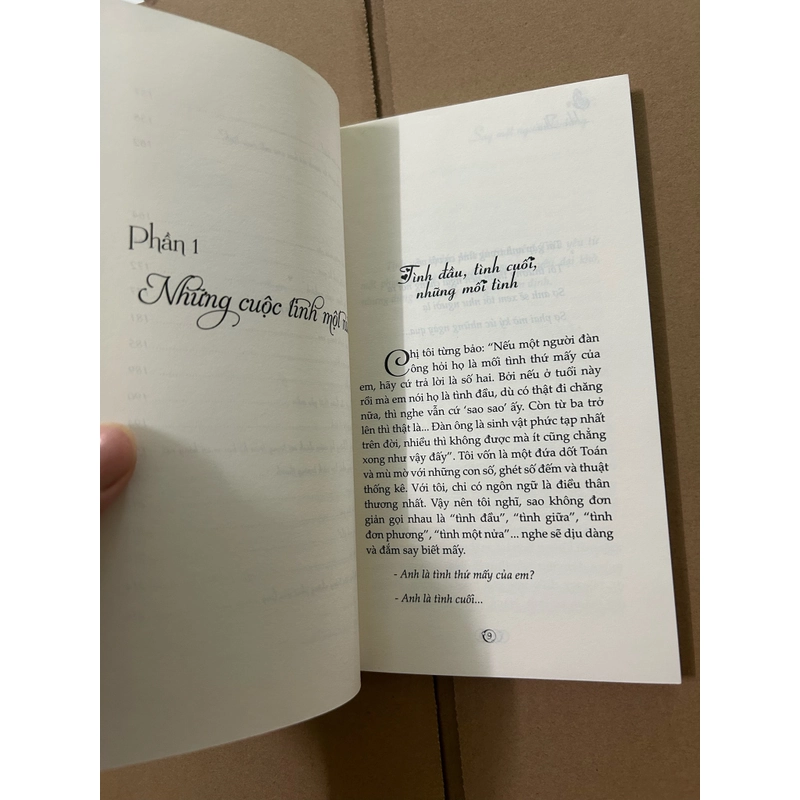 Phần 1
Những cuộc tình một
Tình đầu, tình cuối,
những mối tình
Chị tôi từng bảo: “Nếu một người đàn
ông hỏi họ là mối tình thứ mấy của
em, hãy cứ trả lời là số hai. Bởi nếu ở tuổi này
rồi mà em nói họ là tình đầu, dù có thật đi chăng
nữa, thì nghe vẫn cứ ‘sao sao’ ấy. Còn từ ba trở
lên thì thật là... Đàn ông là sinh vật phức tạp nhất
trên đời, nhiều thì không được mà ít cũng chẳng
xong như vậy đấy”. Tôi vốn là một đứa dốt Toán
và mù mờ với những con số, ghét số đếm và thuật
thống kê. Với tôi, chỉ có ngôn ngữ là điều thân
thương nhất. Vậy nên tôi nghĩ, sao không đơn
giản gọi nhau là “tình đầu”, “tình giữa”, “tình
đơn phương”, “tình một nửa”... nghe sẽ dịu dàng
và đắm say biết mấy.
- Anh là tình thứ mấy của em?
- Anh là tình cuối...
9